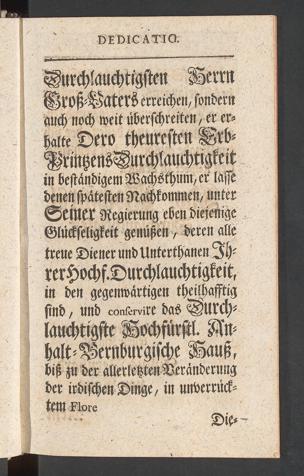 DEDICATIO.
Durchlauchtigsten Herrn
Groß-Vaters erreichen, sondern
auch noch weit überschreiten, er er-
halte Dero theuresten Erb-
Printzens Durchlauchtigkeit
in beständigem Wachsthum, er lasse
denen spätesten Nachkommen, unter
Seiner Regierung eben diejenige
Glückseligkeit genüßen, deren alle
treue Diener und Unterthanen Ih-
rer Hochf. Durchlauchtigkeit,
in den gegenwärtigen theilhafftig
sind, und conservire das Durch-
lauchtigste Hochfürstl. An-
halt-Bernburgische Hauß,
biß zu der allerletzten Veränderung
der irdischen Dinge, in unverrück-
tem Flore
Die-